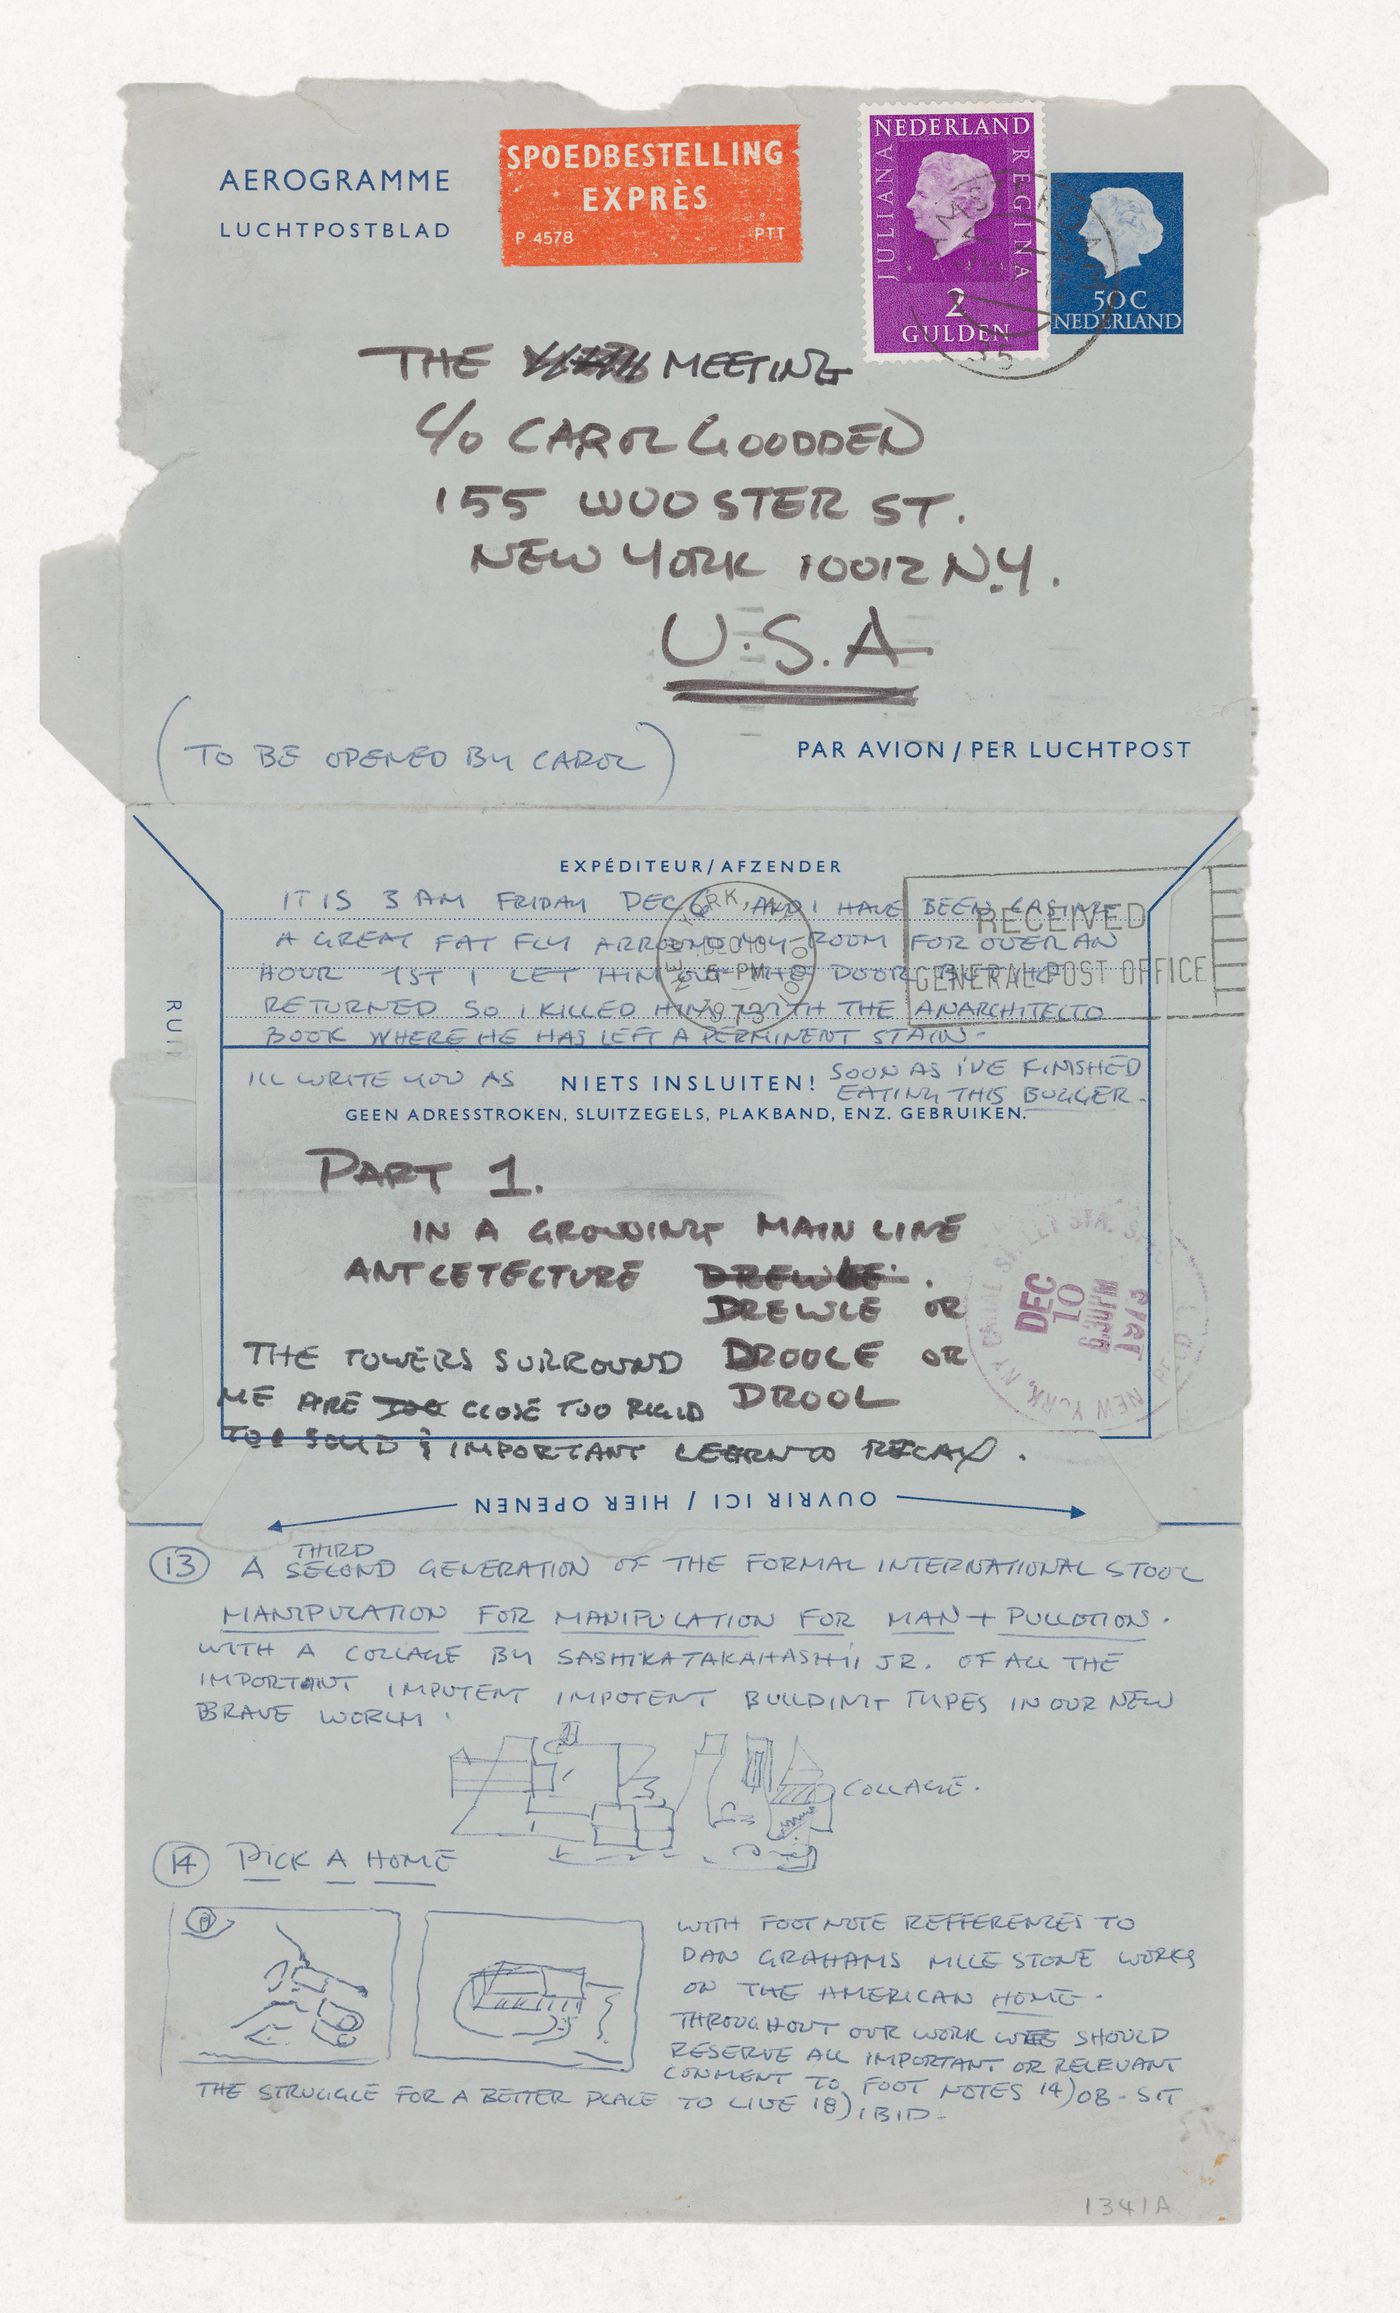 AEROGRAMME
LUCHTPOSTBLAD
SPOEDBESTELLING
EXPRÈS
P 4578 PTT
NEDERLAND
JULIANA
REGINA
2
GULDEN
50 C
NEDERLAND
THE MEETING
C/O CAROL GOODDEN
155 WOOSTER ST.
NEW YORK 10012 N.Y.
U.S.A
(TO BE OPENED BY CAROL)
PAR AVION / PER LUCHTPOST
EXPÉDITEUR/AFZENDER
IT IS 3 AM FRIDAY DEC 6 AND I HAVE BEEN
A GREAT FAT FLY ARROUND MY ROOM FOR OVER AN
HOUR 1ST I LET HIM OUT THE DOOR BUT HE
RETURNED SO I KILLED HIM WITH THE ANARCHITECTO
BOOK WHERE HE HAS LEFT A PERMINENT STAIN.
RECEIVED
GENERAL POST OFFICE
DEC 10
6 PM
1973
ILL WRITE YOU AS SOON AS I'VE FINISHED
EATING THIS BUGGER.
NIETS INSLUITEN!
GEEN ADRESSTROKEN, SLUITZEGELS, PLAKBAND, ENZ. GEBRUIKEN.
PART 1.
IN A GROWING MAIN LINE
ANTCETECTURE DREWLE.
DREWLE OR
DROOLE OR
DROOL
THE TOWERS SURROUND
ME ARE TOO CLOSE TOO RIGID
TOO SOLID & IMPORTANT LEARN TO RELAX.
DEC
10
630PM
1973
NEW YORK, NY
OUVRIR ICI / HIER OPENEN
13 A SECOND THIRD GENERATION OF THE FORMAL INTERNATIONAL STOOL
MANIPULATION FOR MANIPULATION FOR MAN + PULLOTION.
WITH A COLLAGE BY SASHIKATAKAHASHII JR. OF ALL THE
IMPORTANT IMPUTENT IMPOTENT BUILDING TYPES IN OUR NEW
BRAVE WORLM.
COLLAGE.
14 PICK A HOME
WITH FOOT NOTE REFFERENZES TO
DAN GRAHAMS MILE STONE WORKS
ON THE AMERICAN HOME.
THROUGHOUT OUR WORK WEE SHOULD
RESERVE ALL IMPORTANT OR RELEVANT
COMMENT TO FOOT NOTES 14) OB. SIT
THE STRUGGLE FOR A BETTER PLACE TO LIVE 18) IBID.
1341A